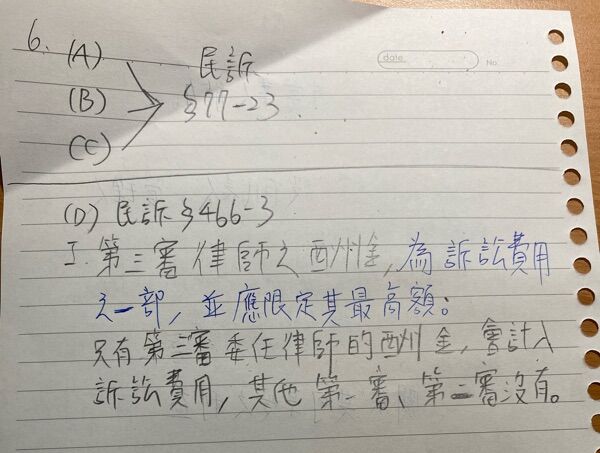 6. (A)
(B)
(C)
民訴
§77-23
date
No.
(D) 民訴§466-3
I. 第三審律師之酬金, 為訴訟費用
之一部, 並應限定其最高額。
只有第三審委任律師的酬金, 會計入
訴訟費用, 其他第一審、第二審沒有。